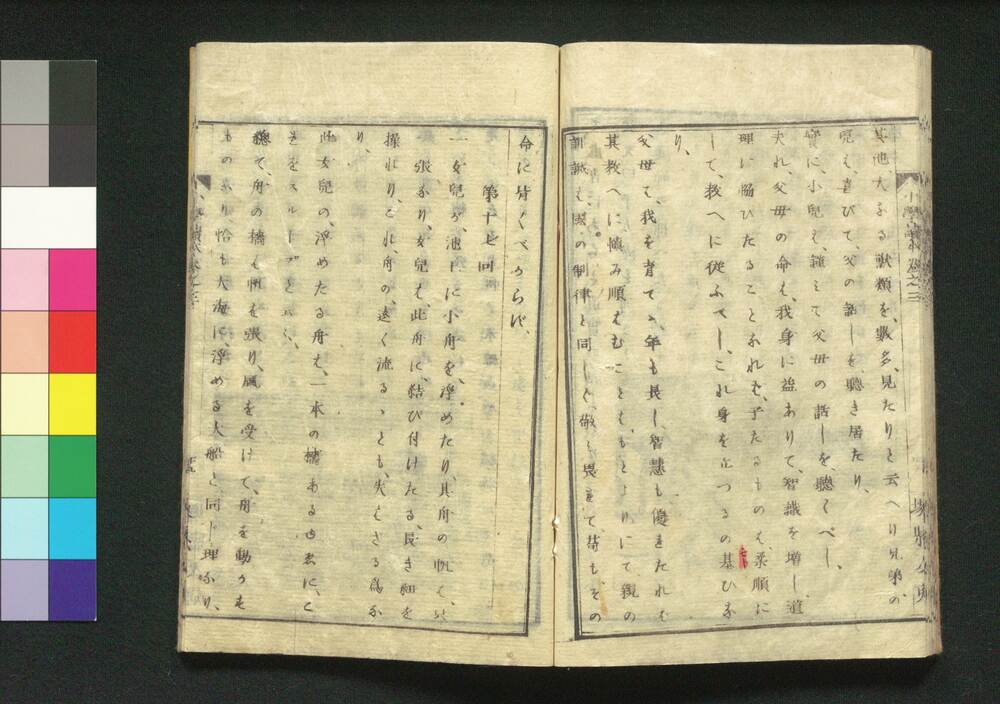 其他大なる獣類を、數多、見たりと云へり、兄弟の
児は、喜びて、父の話しを、聴き居たり、
實に、小児は、謹みて父母の話しを、聴くべし、
夫れ、父母の命は、我身に益ありて、智識を増し、道
理に協ひたることなれば、子たるものは、柔順に
して、教へに從ふべし、これ身を立つるの基ひな
り、
父母は、我を育て、年も長し、智慧も優きたれば
其教へに慎み順はむこともとよりにて、親の
訓誡は國の制律と同じく、敬ひ畏みて、苟も、その
命に背くべからず、
第十七回
一女兒が、池上に小舟を、浮めたり、其舟の帆は、
張あり、女兒は、此舟に、結び付けたる、長き紐を
操れり、これ、舟の、遠く流るゝとも、失はざる爲な
り、
此女兒の、浮めたる舟は、一本の檣ある由ゑに、こ
れをスループといふ、
總て、舟の檣は、帆を張り、風を受けて、舟を動かす
ものなり、恰も大海に、浮める大船と同じ理なり、
小學讀本 卷之三